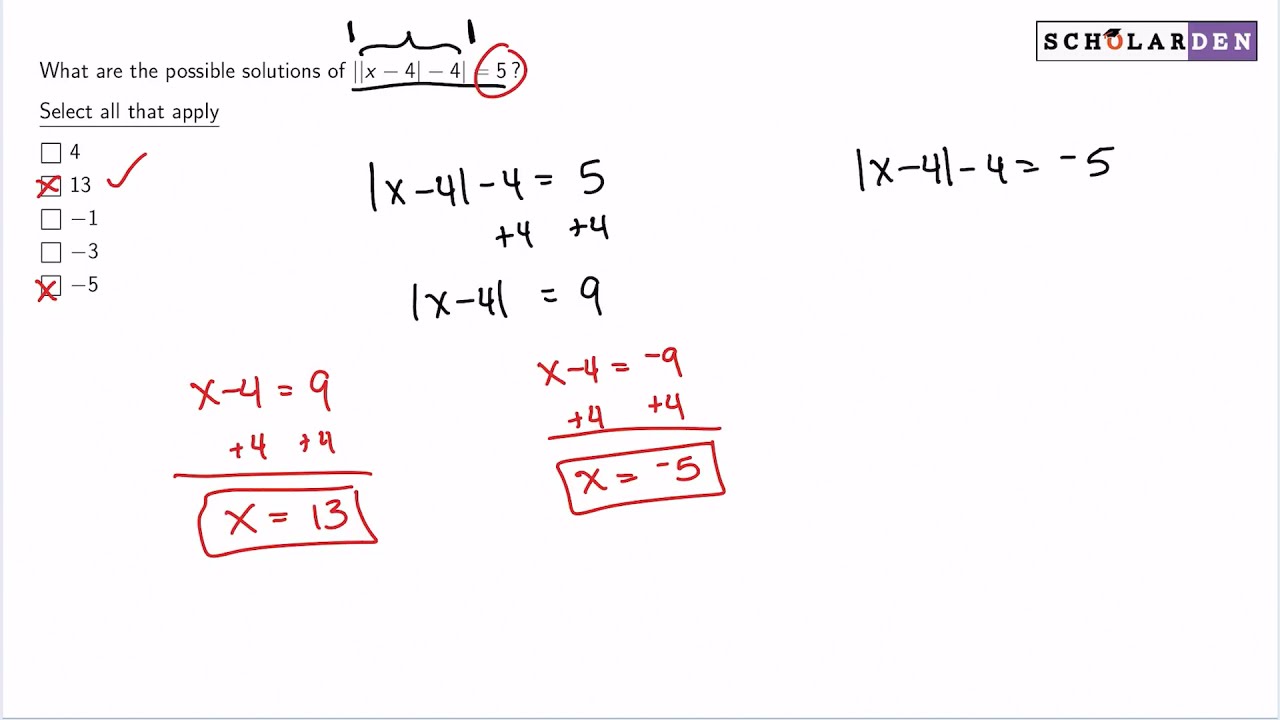 SCHOLARDEN
What are the possible solutions of ||x − 4| − 4| = 5?
Select all that apply
4
13
−1
−3
−5
|x−4|−4 = 5
+4 +4
|x−4| = 9
x−4 = 9
+4 +4
x = 13
x−4 = −9
+4 +4
x = −5
|x−4|−4 = −5